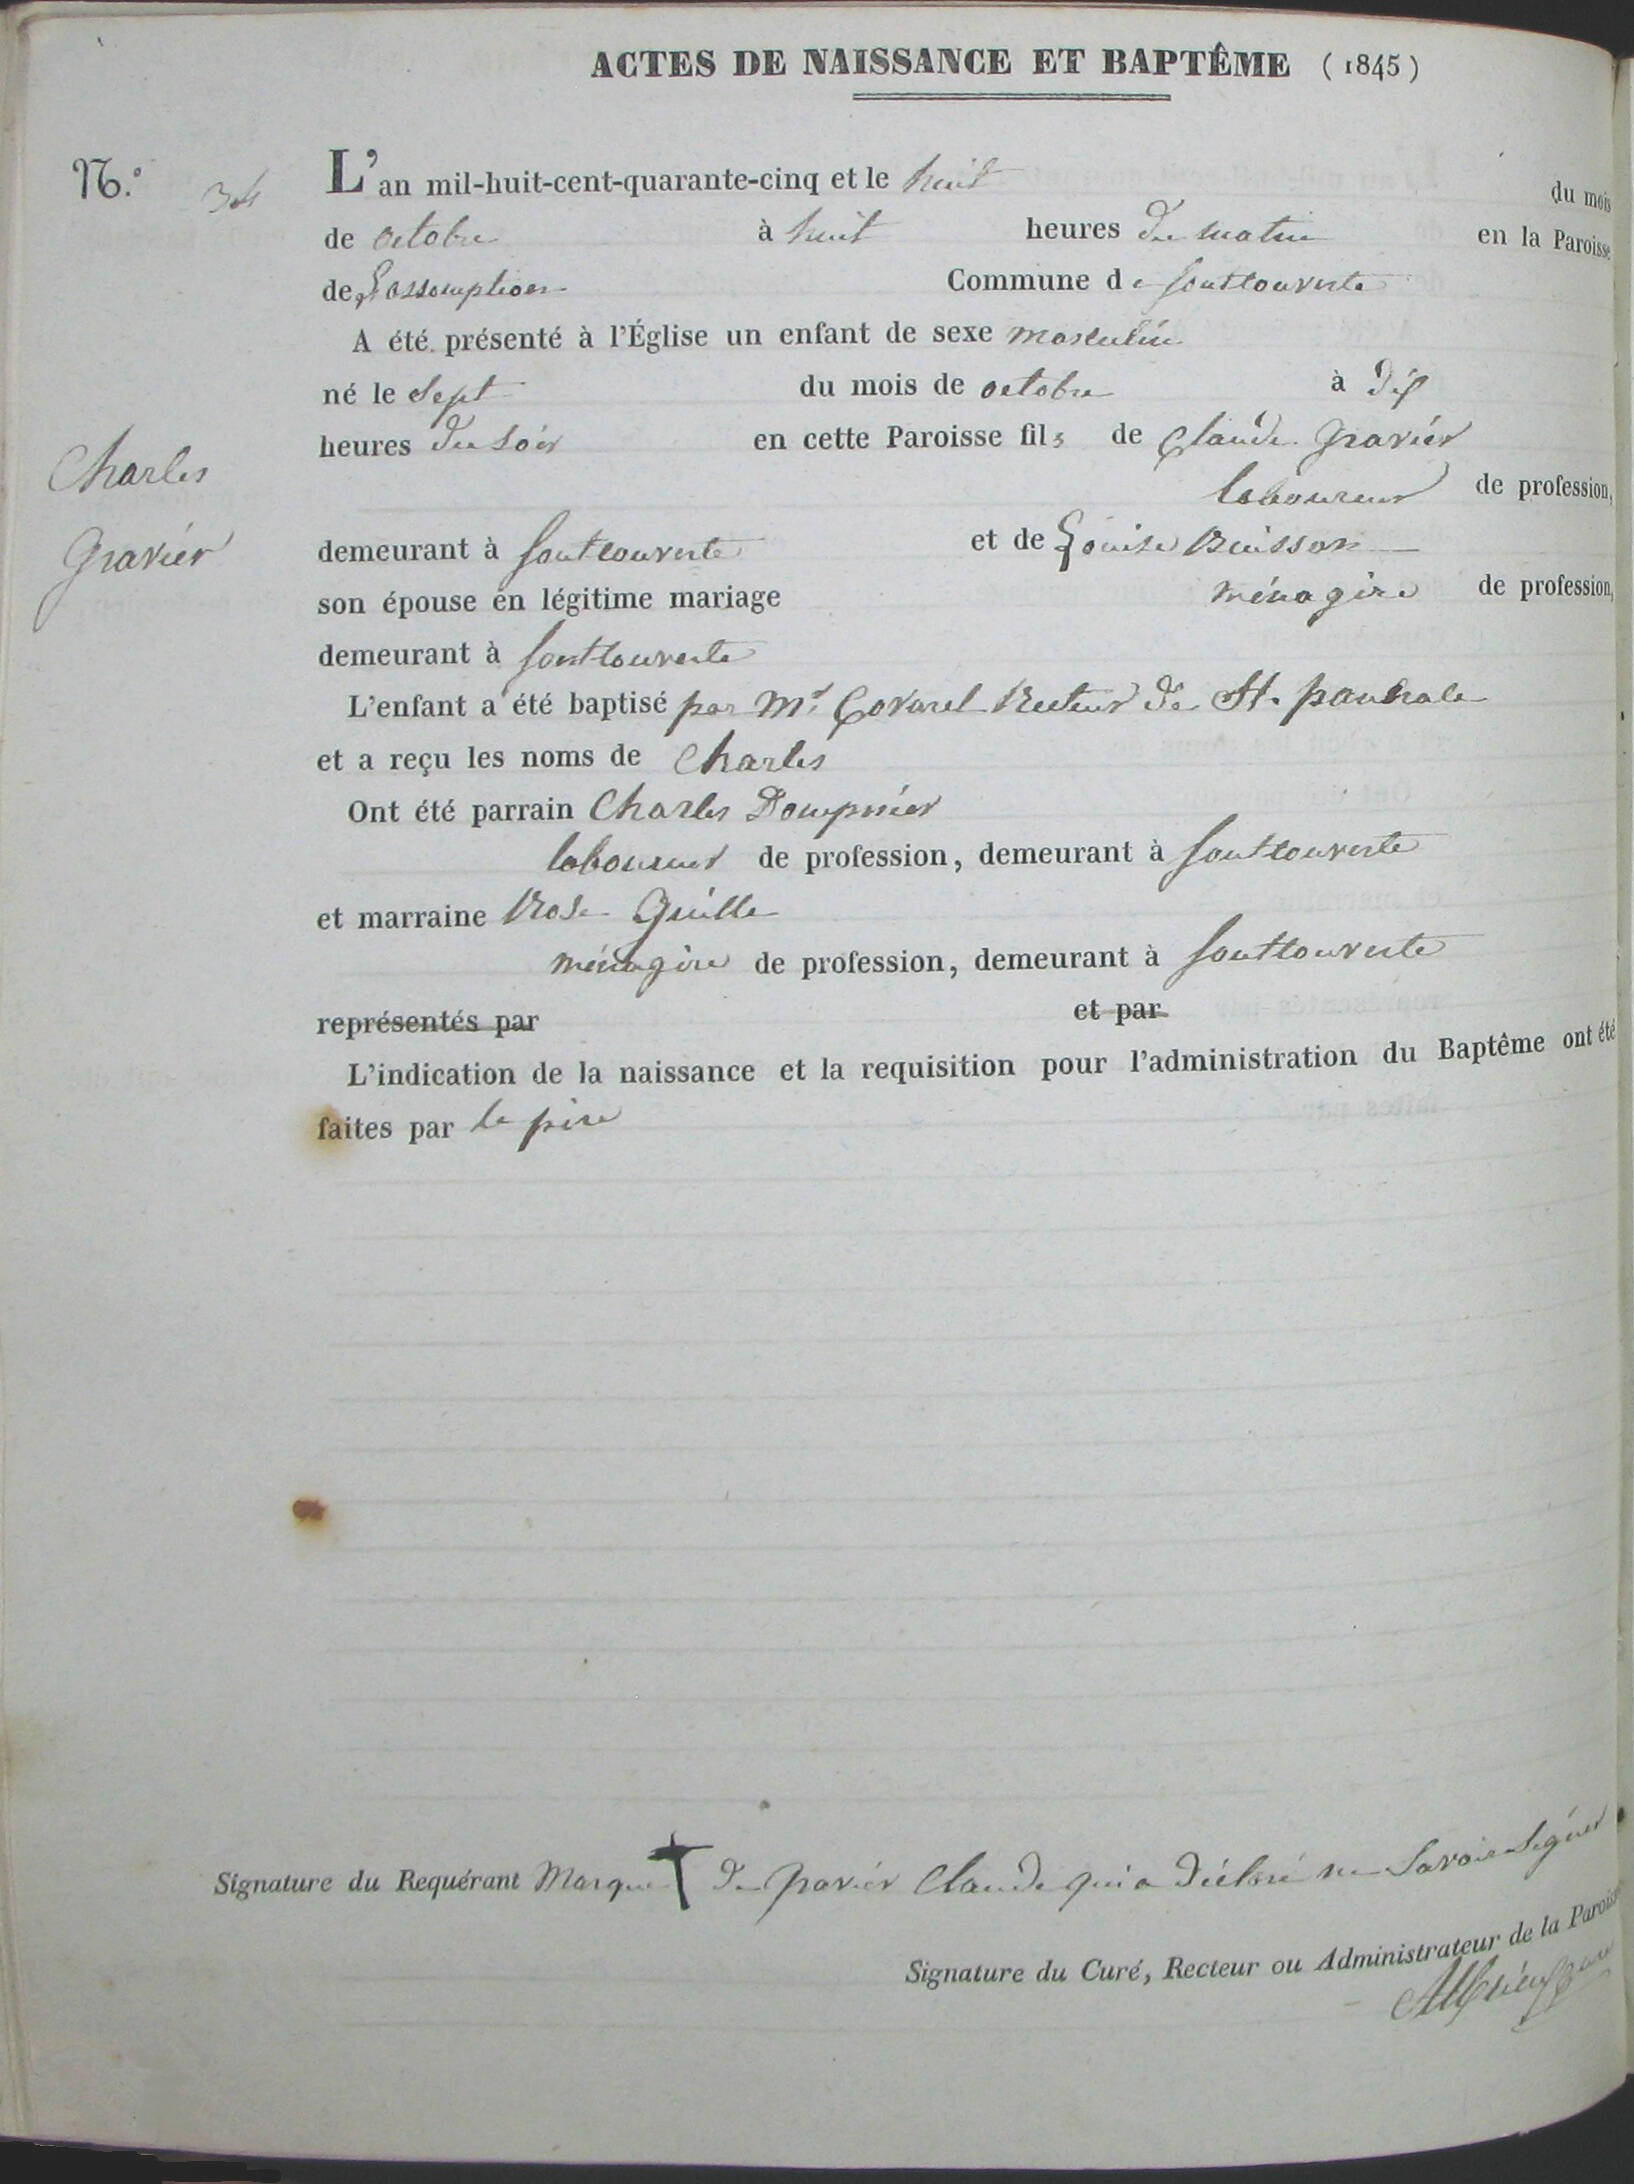 ACTES DE NAISSANCE ET BAPTÊME (1845)
N.º 34
L'an mil-huit-cent-quarante-cinq et le huit du mois
de octobre à huit heures du matin en la Paroisse
de L'assomption Commune de fontcouverte
A été présenté à l'Église un enfant de sexe masculin
né le sept du mois de octobre à dix
heures du soir en cette Paroisse fils de Claude Gravier
laboureur de profession,
Charles
Gravier
demeurant à fontcouverte et de Louise Buisson
son épouse en légitime mariage ménagère de profession,
demeurant à fontcouverte
L'enfant a été baptisé par Mr Covarel Recteur de St. pancrace
et a reçu les noms de Charles
Ont été parrain Charles Dompnier
laboureur de profession, demeurant à fontcouverte
et marraine Rose Guille
ménagère de profession, demeurant à fontcouverte
représentés par et par
L'indication de la naissance et la requisition pour l'administration du Baptême ont été
faites par le père
Signature du Requérant Marque de gravier Claude qui a déclaré ne Savoir Signer
Signature du Curé, Recteur ou Administrateur de la Parois